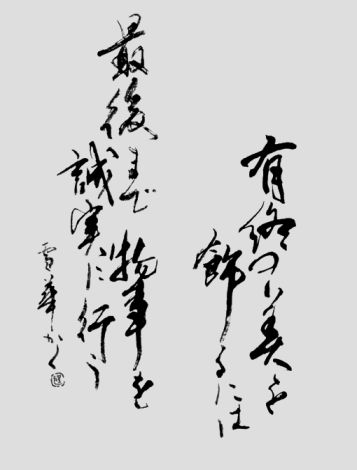 有終の美を
飾るには
最後まで物事を
誠実に行う
雪華かく